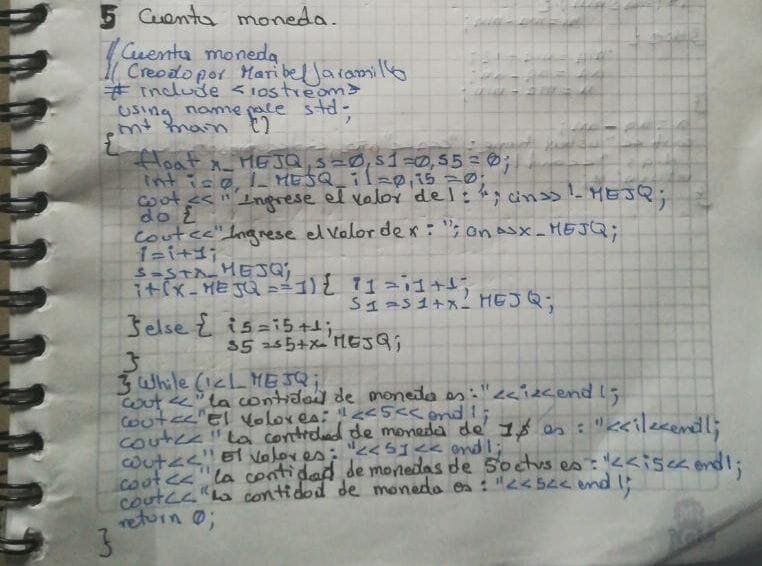 5 Cuenta moneda.
// Cuenta moneda
// Creado por Maribel Jaramillo
# include <iostream>
using namepace std;
int main ()
{
float x_MEJQ, s=0, s1=0, s5=0;
int i=0, l_MEJQ, i1=0, i5=0;
cout << "Ingrese el valor de l: "; cin>> l_MEJQ;
do {
cout<<"Ingrese el valor de x: "; cin>>x_MEJQ;
i=i+1;
s=s+x_MEJQ;
if(x_MEJQ==1){ i1=i1+1;
s1=s1+x_MEJQ;
}else{ i5=i5+1;
s5=s5+x_MEJQ;
}
} while (i<l_MEJQ;
cout<<"la cantidad de moneda es:"<<i<<endl;
cout<<"El valor es: "<<s<<endl;
cout<<"La cantidad de moneda de 1$ es : "<<i1<<endl;
cout<<"El valor es: "<<s1<<endl;
cout<<"la cantidad de monedas de 50ctvs es: "<<i5<<endl;
cout<<"La cantidad de moneda es: "<<s<<endl;
return 0;
}